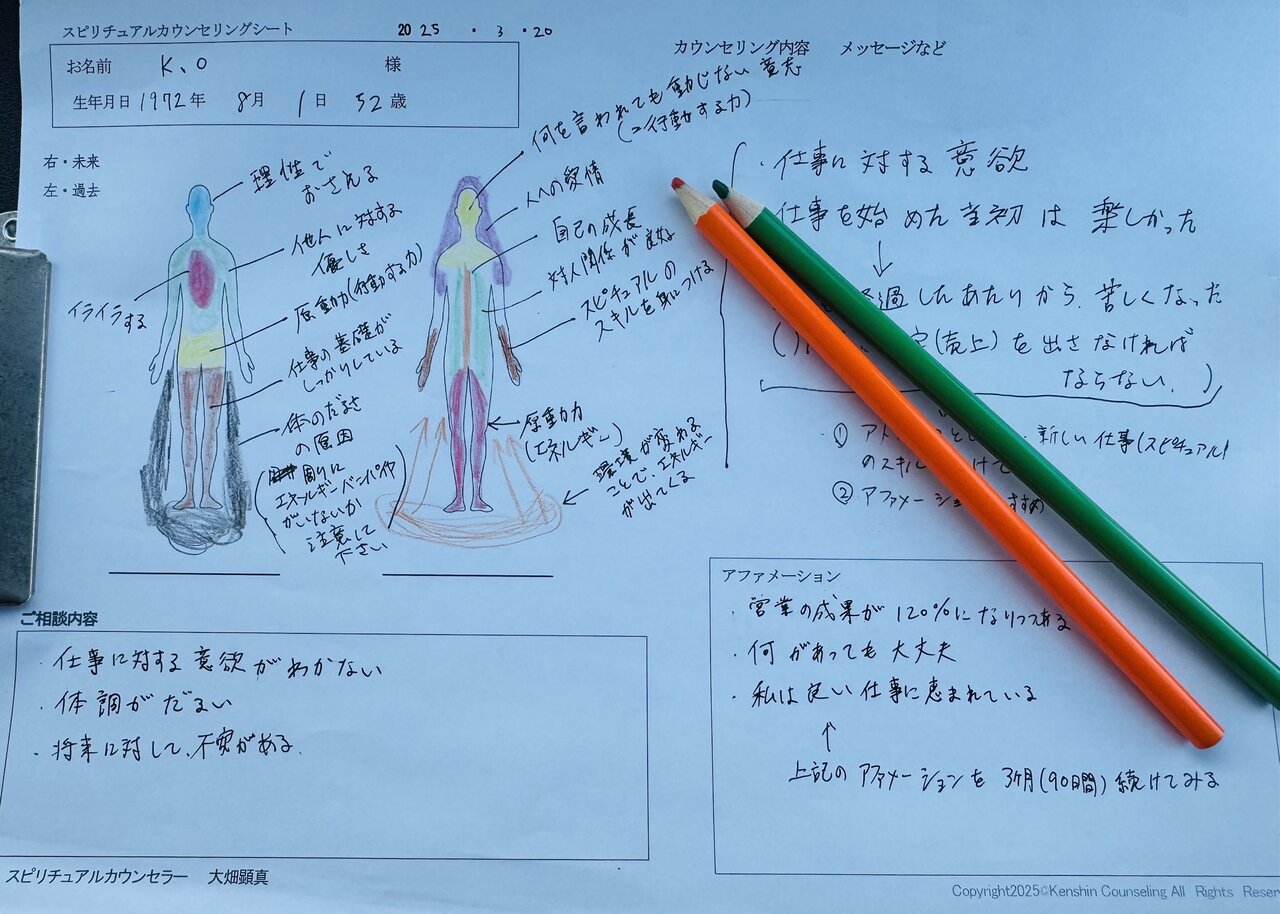 スピリチュアルカウンセリングシート 2025・3・20
お名前 K、O 様
生年月日 1972年 8月 1日 52歳
右・未来
左・過去
理性で
おさえる
他人に対する
優しさ
原動力(行動する力)
イライラする
仕事の基礎が
しっかりしている
体のだるさ
の原因
(周りに
エネルギーバンパイヤ
がいないか
注意して
下さい)
何を言われても動じない意志
(=行動する力)
人への愛情
自己の成長
対人関係が良好
スピチュアルの
スキルを身につける
原動力
(エネルギー)
環境が変わる
ことで、エネルギー
が出てくる
ご相談内容
・仕事に対する意欲がわかない
・体調がだるい
・将来に対して、不安がある。
スピリチュアルカウンセラー 大畑顕真
カウンセリング内容 メッセージなど
・仕事に対する意欲
仕事を始めた当初は楽しかった
↓
過したあたりから、苦しくなった
(売上)を出さなければ
ならない。)
① 新しい仕事(スピチュアル)
のスキル
② アファメーション すすめ
アファメーション
・営業の成果が120%になりつつある
・何があっても大丈夫
・私は良い仕事に恵まれている
↑
上記のアファメーションを3ヶ月(90日間)続けてみる
Copyright2025©Kenshin Counseling All Rights Reser